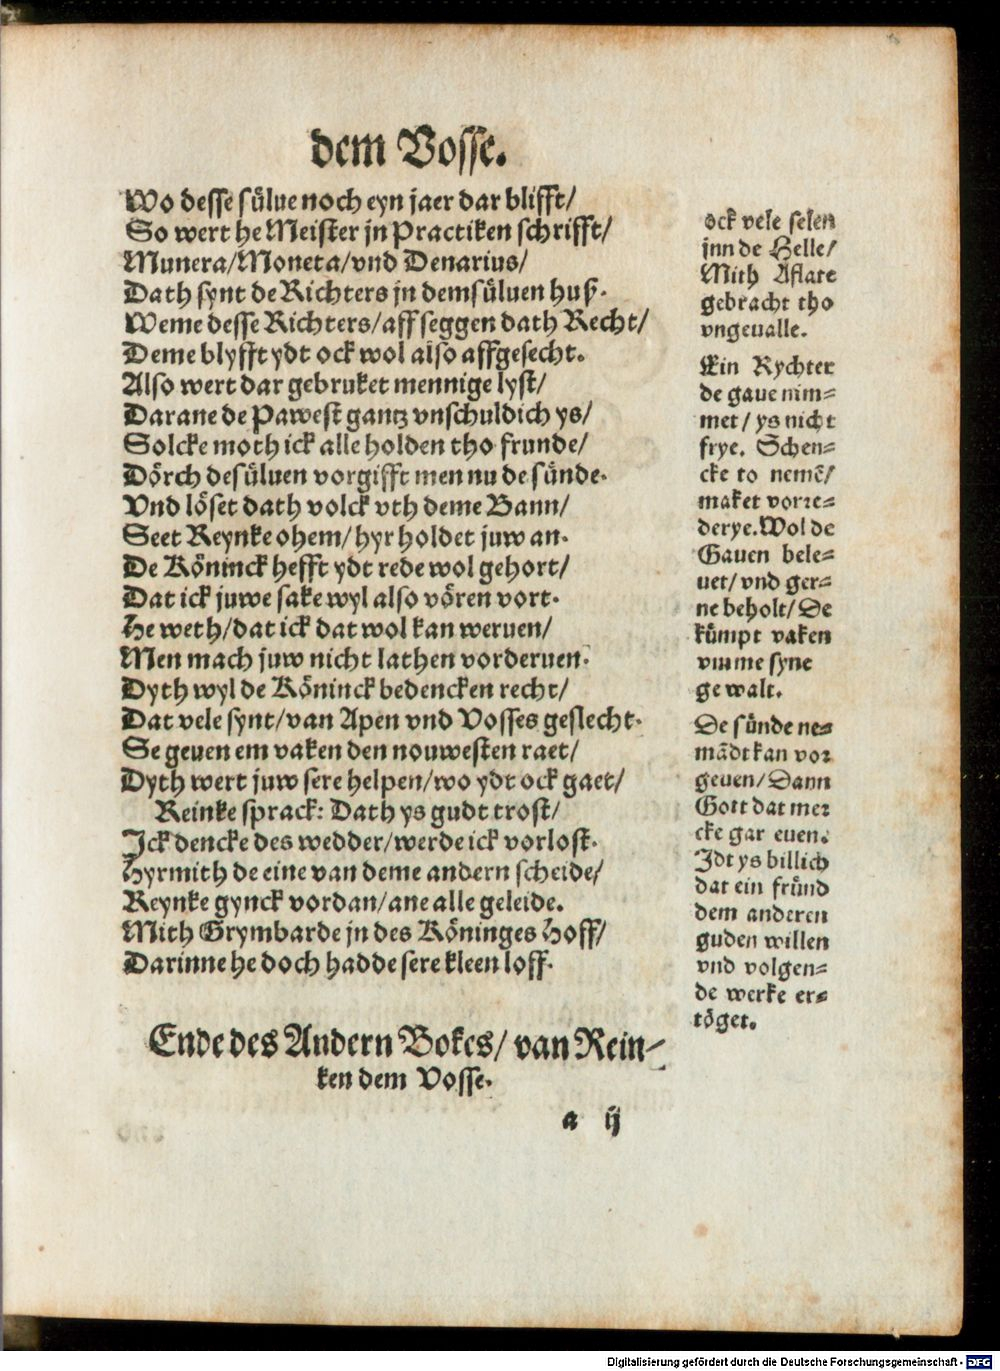 dem Vosse.
Wo desse sülue noch eyn jaer dar blifft/
So wert he Meister jn Practiken schrifft/
Munera/Moneta/vnd Denarius/
Dath synt de Richters jn demsüluen huß.
Weme desse Richters/aff seggen dath Recht/
Deme blyfft ydt ock wol also affgesecht.
Also wert dar gebruket mennige lyst/
Darane de Pawest gantz vnschuldich ys/
Solcke moth ick alle holden tho frunde/
Dörch desüluen vorgifft men nu de sünde.
Vnd löset dath volck vth deme Bann/
Seet Reynke ohem/hyr holdet juw an.
De Köninck hefft ydt rede wol gehort/
Dat ick juwe sake wyl also vören vort.
He weth/dat ick dat wol kan weruen/
Men mach juw nicht lathen vorderuen.
Dyth wyl de Köninck bedencken recht/
Dat vele synt/van Apen vnd Vosses geslecht.
Se geuen em vaken den nouwesten raet/
Dyth wert juw sere helpen/wo ydt ock gaet/
Reinke sprack: Dath ys gudt trost/
Ick dencke des wedder/werde ick vorlost.
Hyrmith de eine van deme andern scheide/
Reynke gynck vordan/ane alle geleide.
Mith Grymbarde jn des Köninges Hoff/
Darinne he doch hadde sere kleen loff.
Ende des Andern Bokes/van Rein-
ken dem Vosse.
a ij
ock vele selen
jnn de Helle/
Mith Aflate
gebracht tho
vngeualle.
Ein Rychter
de gaue nim=
met/ys nicht
frye. Schen=
cke to nemē/
maket vorre=
derye. Wol de
Gauen bele=
uet/vnd ger=
ne beholt/De
kümpt vaken
vmme syne
gewalt.
De sünde ne=
mādt kan vor
geuen/Dann
Gott dat mer
cke gar euen.
Idt ys billich
dat ein fründ
dem anderen
guden willen
vnd volgen=
de werke er=
töget.
Digitalisierung gefördert durch die Deutsche Forschungsgemeinschaft - DFG